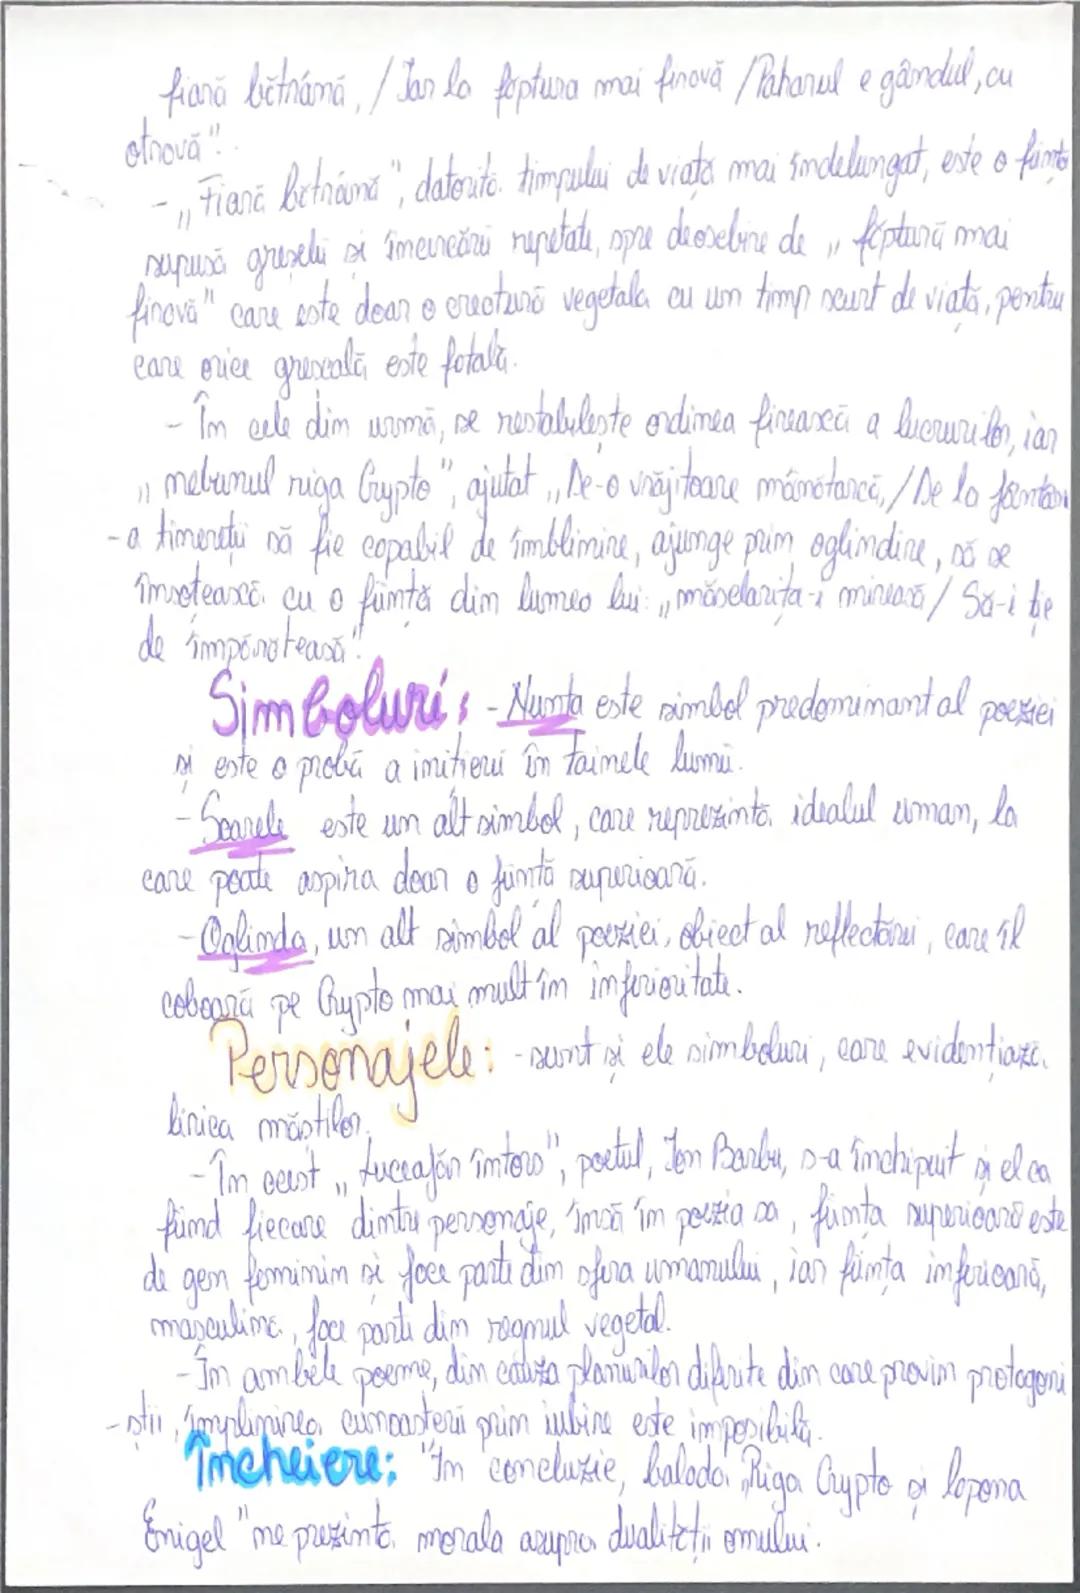 fiară bătrână, / Iar la făptura mai firavă / Paharul e gândul, cu
otravă".
- „Fiară bătrână", datorită timpului de viață mai îndelungat, este o ființă
supusă greșelii și încercării repetate, spre deosebire de „făptură mai
firavă" care este doar o creatură vegetală cu un timp scurt de viață, pentru
care orice greșeală este fatală.
- În cele din urmă, se restabilește ordinea firească a lucrurilor, iar
„nebunul riga Crypto", ajutat „De-o vrăjitoare mânătarcă, / De la fântân
-a tinereții să fie capabil de îmblinire, ajunge prin oglindire, să se
însoțească cu o ființă din lumea lui: „măselarița-i mireasă / Să-i fie
de împărăteasă".
Simboluri: - Nunta este simbol predominant al poeziei
și este o probă a inițierii în tainele lumii.
- Soarele este un alt simbol, care reprezintă idealul uman, la
care poate aspira doar o ființă superioară.
- Oglinda, un alt simbol al poeziei, obiect al reflectării, care îl
coboară pe Crypto mai mult în inferioritate.
Personajele: - sunt și ele simboluri, care evidențiază
lirica măștilor.
- În acest „Luceafăr întors", poetul, Ion Barbu, s-a închipuit și el ca
fiind fiecare dintre personaje, însă în poezia sa, ființa superioară este
de gen feminin și face parte din sfera umanului, iar ființa inferioară,
masculină, face parte din regnul vegetal.
- În ambele poeme, din cauza planurilor diferite din care provin protagoni
-știi, împlinirea cunoașterii prin iubire este imposibilă.
Încheiere: "În concluzie, balada „Riga Crypto și lapona
Enigel" ne prezintă morala asupra dualității omului.